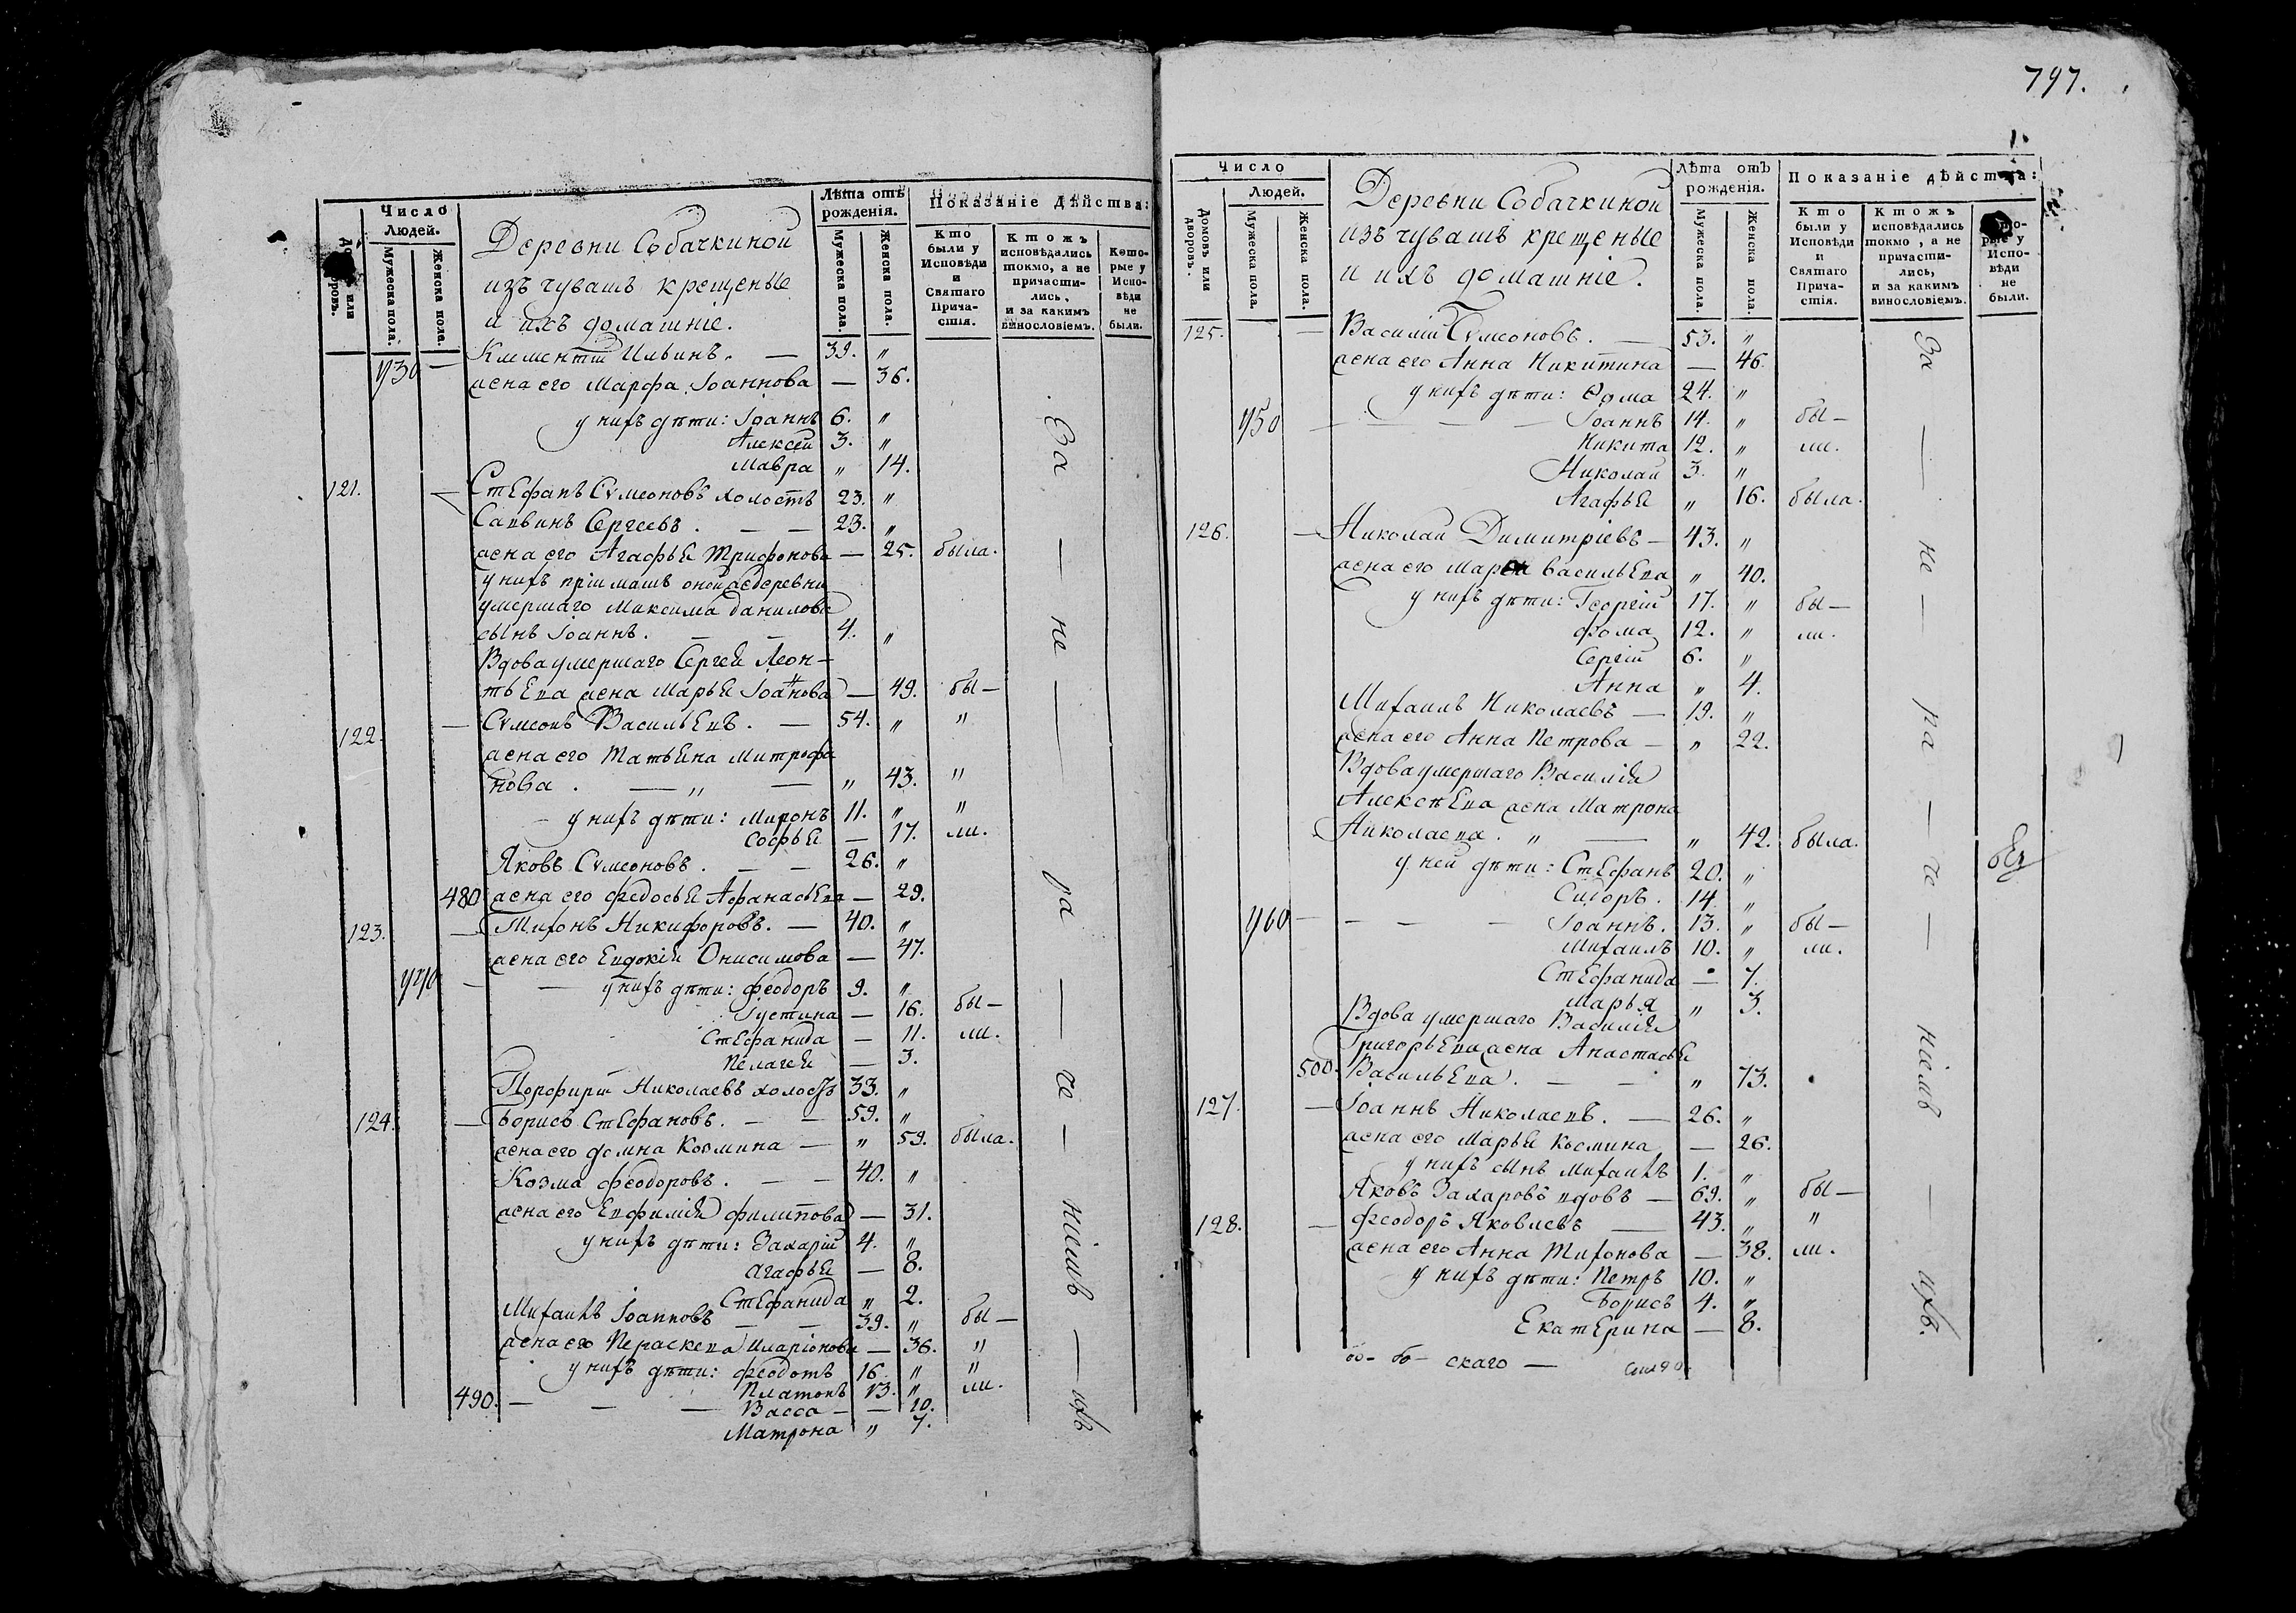 Число
Людей.
Мужеска пола.
Женска пола.
Деревни Собачкиной
изъ чувашъ крещеные
и ихъ домашніе.
Лѣта отъ
рожденія.
Мужеска пола.
Женска пола.
Показаніе дѣйства:
Кто
были у
Исповѣди
и
Святаго
Прича-
стія.
Ктожъ
исповѣдались
токмо, а не
причасти-
лись,
и за какимъ
винословіемъ.
Кото-
рые у
Испо-
вѣди
не
были.
Климентій Ильинъ. — 39. „
жена его Марфа Іоаннова — 36.
у нихъ дѣти: Іоаннъ 6. „
Алексей 3. „
Мавра „ 14.
121. — Стефанъ Сумеоновъ холостъ 23. „
Савинъ Сергеевъ. — — 23. „
жена его Агафья Трифонова — 25. была.
у нихъ пріимашъ оной же деревни
умершаго Максима Данилова
сынъ Іоаннъ. — — 4. „
Вдова умершаго Сергея Леон-
тьева жена Марья Іоаннова — 49. бы—
122. — Сумеонъ Васильевъ. — 54. „ „
жена его Татьяна Митрофа
нова . — „ — „ 43. „
у нихъ дѣти: Миронъ 11. „ „
Софья — 17. ли.
Яковъ Сумеоновъ. — — 26. „
480 жена его Федосья Афанасьева — 29.
123. — Тихонъ Никифоровъ. — 40. „
жена его Евдокія Онисимова — 47.
у нихъ дѣти: Феодоръ 9. „
Іустина — 16. бы—
Стефанида — 11. ли.
Пелагея — 3.
Порфирій Николаевъ холостъ 33. „
124. — Борисъ Стефановъ. — — 59. „
жена его Домна Козмина — „ 59. была.
Козма Феодоровъ. — — 40. „
жена его Евфимія Филипова — 31.
у нихъ дѣти: Захарій 4. „
Агафья — 8.
Стефанида „ 2.
Михаилъ Іоанновъ — — 39. „ бы—
жена его Параскева Иларіонова — 36. „
у нихъ дѣти: Феодотъ 16. „ „
Платонъ 13. „ ли.
490. — — — Васса — — 10.
Матрона „ 7.
За — не — ра — че — ніемъ — ихъ
797.
Число
Людей.
Домовъ или
дворовъ.
Мужеска пола.
Женска пола.
Деревни Собачкиной
изъ чувашъ крещеные
и ихъ домашніе.
Лѣта отъ
рожденія.
Мужеска пола.
Женска пола.
Показаніе дѣйства:
Кто
были у
Исповѣди
и
Святаго
Прича-
стія.
Ктожъ
исповѣдались
токмо, а не
причасти-
лись,
и за какимъ
винословіемъ.
Испо-
вѣди
не
были.
125. — Василій Сумеоновъ. — 53. „
жена его Анна Никитина — 46.
у нихъ дѣти: Ѳома 24. „
Іоаннъ 14. „ бы—
Никита 12. „ ли.
Николай 3. „
Агафья „ 16. была.
126. — Николай Димитріевъ — 43. „
жена его Васильева „ 40.
у нихъ дѣти: Георгій 17. „ бы—
Фома 12. „ ли.
Сергій 6. „
Анна „ 4.
Михаилъ Николаевъ — 19. „
жена его Анна Петрова — „ 22.
Вдова умершаго Василія
Алексѣева жена Матрона
Николаева. „ — „ 42. была.
у ней дѣти: Стефанъ 20. „
Сидоръ. 14. „
— — — — Іоаннъ. 13. „ бы—
Михаилъ 10. „ ли.
Стефанида — 7.
Марья „ 3.
Вдова умершаго Василія
Григорьева жена Анастасья
500. Васильева. — — „ 73.
127. — Іоаннъ Николаевъ. — 26. „
жена его Марья Космина — 26.
у нихъ сынъ Михаилъ 1. „
Яковъ Захаровъ вдовъ — 69. „ бы—
128. — Феодоръ Яковлевъ — 43. „ „
жена его Анна Тихонова — 38. ли.
у нихъ дѣти: Петръ 10. „
Борисъ 4. „
Екатерина — 8.
За — не — ра — че — ніемъ — ихъ.
скаго —